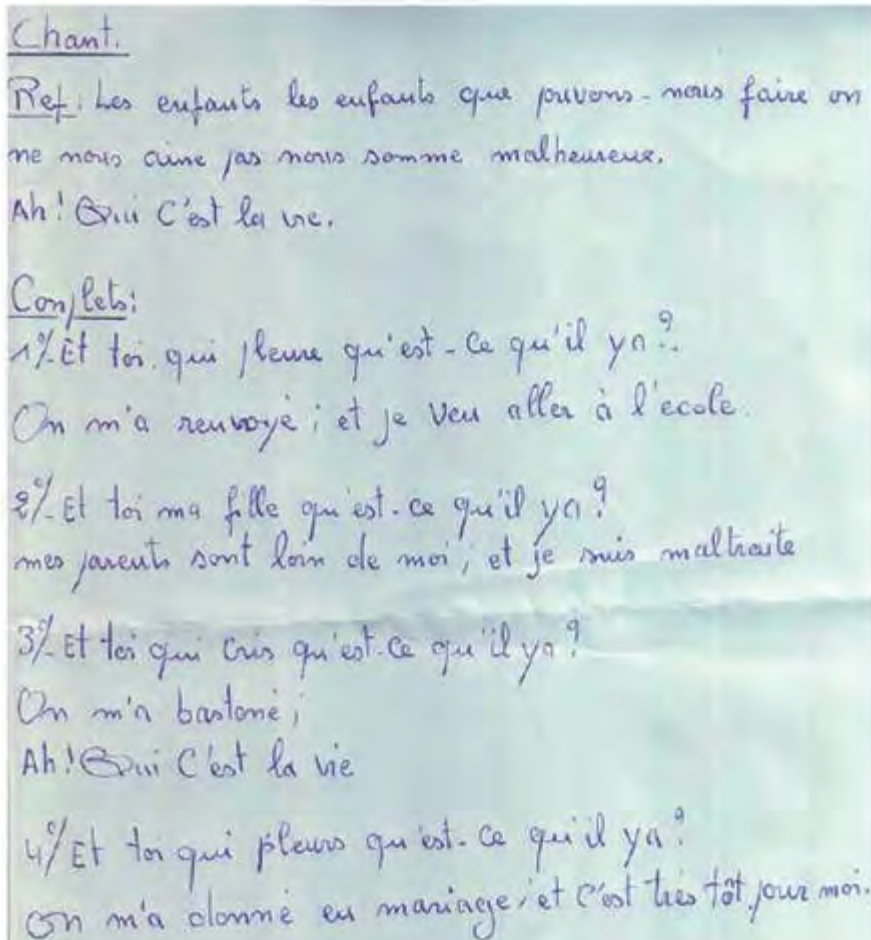 Chant.
Ref: Les enfants les enfants que puvons-nous faire on
ne nous aime pas nous somme malheureux.
Ah! Oui C'est la vie.
Couplets:
1°/-Et toi qui pleure qu'est-ce qu'il ya?
On m'a renvoyé; et je veu aller à l'ecole.
2°/-Et toi ma fille qu'est-ce qu'il ya?
mes parents sont loin de moi, et je suis maltraite
3°/-Et toi qui cris qu'est-ce qu'il ya?
On m'a bastoné;
Ah! Oui C'est la vie
4°/Et toi qui pleurs qu'est-ce qu'il ya?
On m'a donné en mariage, et c'est très tôt pour moi.